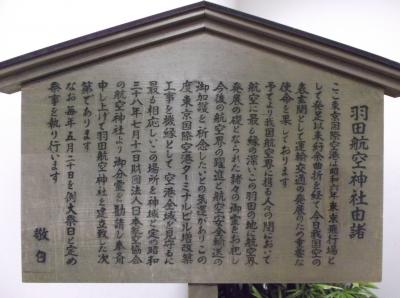 羽田航空神社由緒
ここ東京国際空港は昭和六年東京飛行場と
して発足以来紆余曲折を経て今日我国空の
表玄関として運輸交通の発展のため重要な
使命を果しております
予てより我国航空界に携る人々の間において
航空に最も縁の深いこの羽田の地に航空界
発展の礎となられた諸々の御霊をお祀し
今後の航空界の躍進と航空安全輸送の
御加護を祈念したいとの気運がありこの
度東京国際空港ターミナルビル増改築
工事を機縁として空港全域を見守るに
最も相応しいこの場所を神域と定め昭和
三十八年七月十日財団法人日本航空協会
の航空神社より御分霊を勧請し奉斎
申し上げて羽田航空神社を建立致した次
第であります
なお毎年五月二十日を例大祭日と定め
祭事を執り行います
敬白